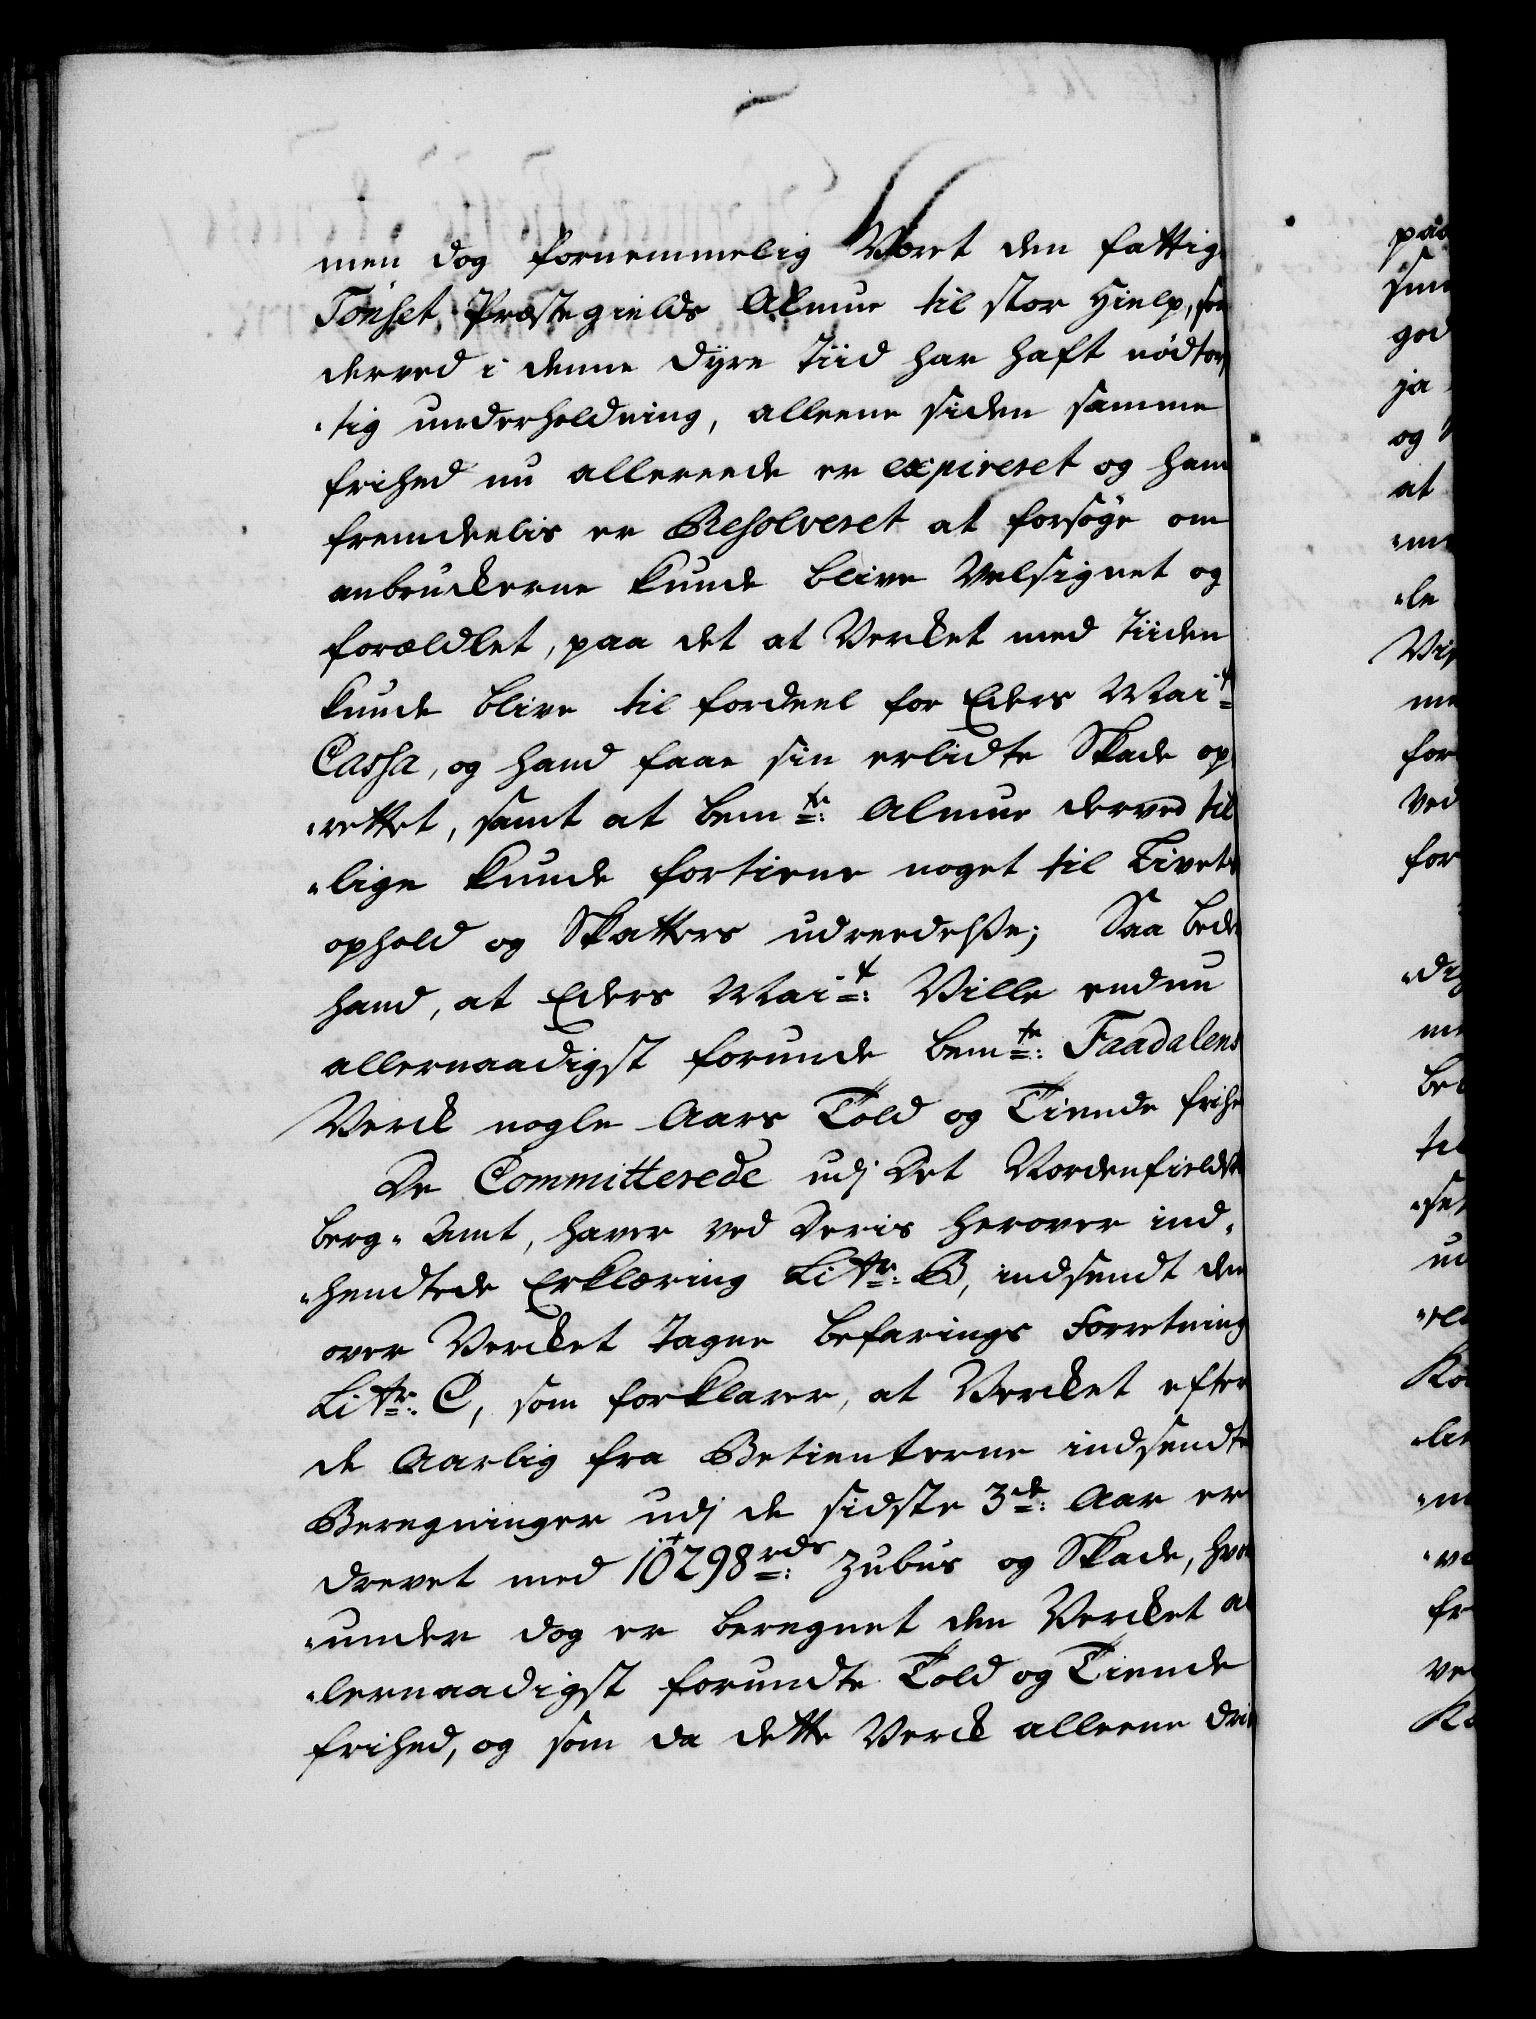 men dog fornemmelig Været den fattig
Tønset Præstegields Almue til stor Hielp, som
derved i denne dyre Tiid har haft nødtørf
„tig underholdning, alleene siden samme
frihed nu allereede er expireret og hand
fremdeelis er Resolveret at forsøge om
anbrudterne kunde blive Velsignet og
forædlet, paa det at Verket med tiiden
kunde blive til fordeel for Eders Mait:
Cassa, og hand faae sin erlidte Skade op
„rettet, samt at bemte: Almue derved til
„lige kunde fortiene noget til Livets
ophold og Skatters udreedelsse; Saa beder
hand, at Eders Mait: Ville endnu
allernaadigst forunde bemte: Faadalens
Verck nogle Aars Told og Tiende frihe
De Committerede udj Det Nordenfieldske
berg„ Amt, haver ved Deris herover ind„
„hendtede Erklæring Litr: B, indsendt den
over Verket Tagne befarings Forretning
Litr: C, som forklarer, at Verket efter
de Aarlig fra Betienterne indsendte
Beregninger udj de sidste 3de: Aar er
drevet med 10298 rdr: Zubus og Skade, hvor
„under dog er beregnet den Verket al
„lernaadigst forundte Told og Tiende
frihed, og som da dette Verck alleene dri
paa
god
ja
og
at
„le
me
for
Ved
for